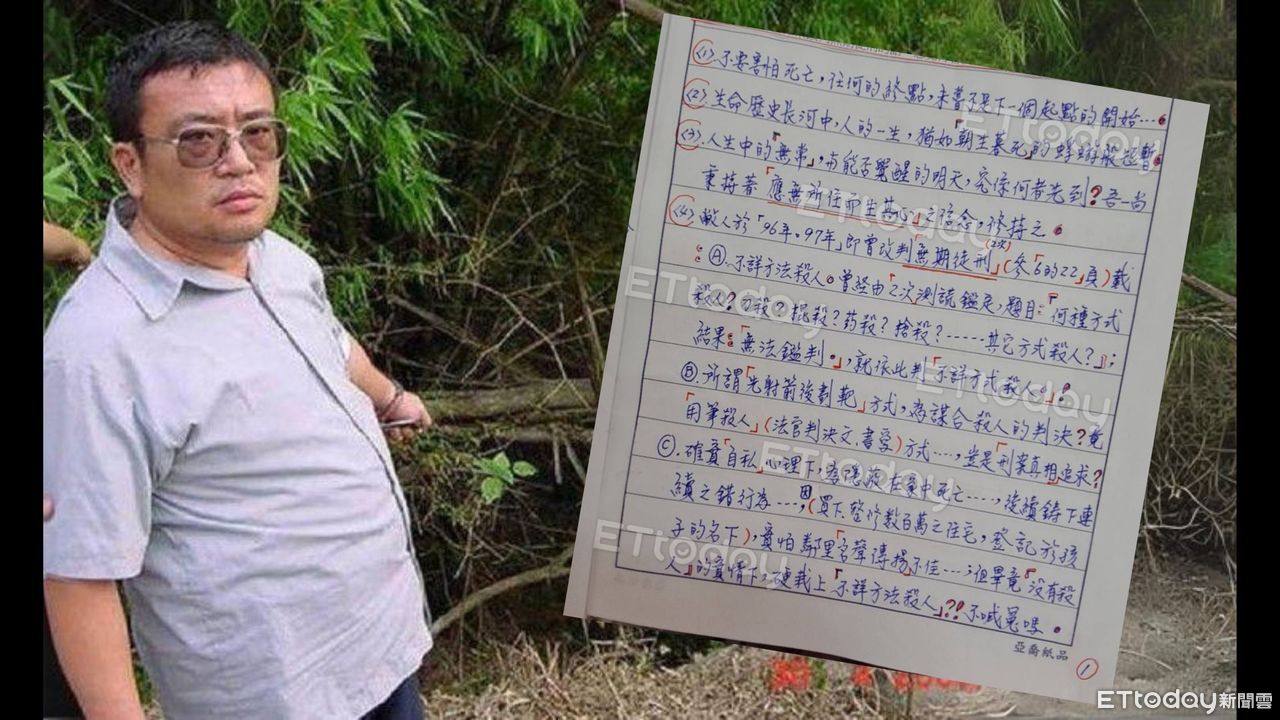 (1).不要害怕死亡,任何的終點,未嘗不是下一個起點的開始…。
(2).生命歷史長河中,人的一生,猶如「朝生暮死」的蜉蝣般短暫。
(3).人生中的「無常」,與能否覺醒的明天,究係何者先到?吾一尚
秉持著「應無所住而生其心」之信念,修持之。
(4).敝人於「96年、97年」即曾改判無期徒刑(2次)(參「6的22」頁)載
:Ⓐ.不詳方法殺人。曾經由「2次測謊鑑定,題目:「何種方式
殺人?刀殺?掐殺?葯殺?搶殺?……其它方式殺人?」;
結果:「無法鑑判。」,就依此判「不詳方式殺人。」?
Ⓑ.所謂「先射箭後劃靶」方式,為謀合殺人的判決?竟
「用筆殺人」(法官判決文、書受)方式…,豈是「刑案真相追求?
Ⓒ.確實「自私」心理下,為隱家中死亡…,後續鑄下連
續之錯行為…,因(買下、整修數百萬之住宅,登記於孩
子的名下),實怕鄰里「名聲傳揚不佳…;但畢竟「沒有殺
人」的實情下,硬栽上「不詳方法殺人」?!不喊冤嗎。
亞喬紙品
1
ETtoday
ETtoday
ETtoday
ETtoday
ETtoday
ETtoday
ETtoday新聞雲